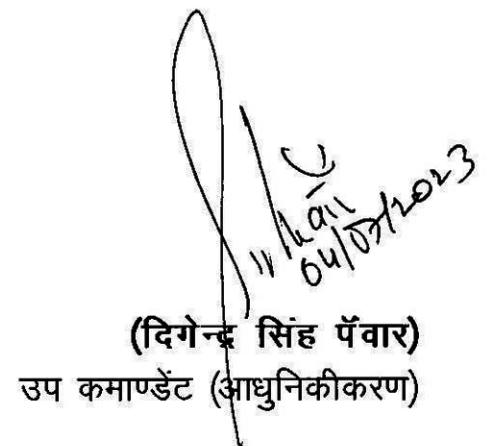 04/07/2023
(दिगेन्द्र सिंह पॅवार)
उप कमाण्डेंट (आधुनिकीकरण)